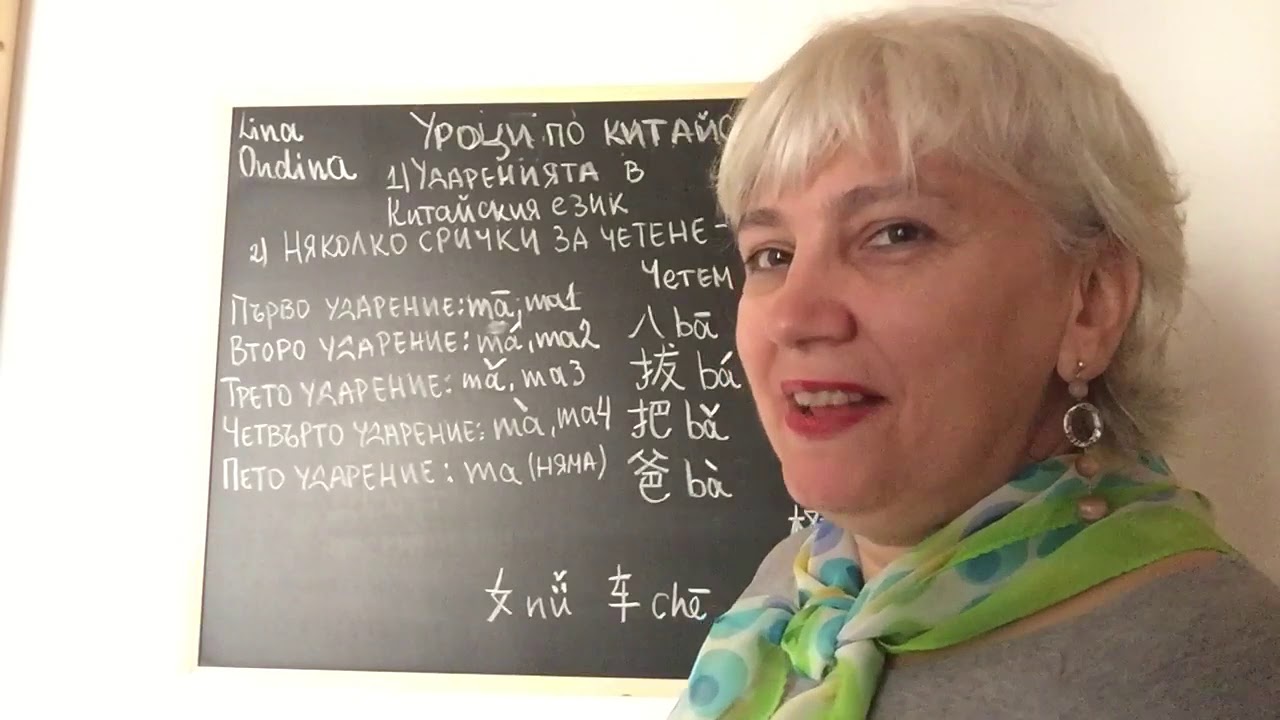 Lina
Ondina
Уроци по китайс
1) Ударенията в
Китайския език
2) Няколко срички за четене -
Четем
Първо ударение: mā, ma1
Второ ударение: má, ma2
Трето ударение: mǎ, ma3
Четвърто ударение: mà, ma4
Пето ударение: ma (няма)
八 bā
拔 bá
把 bǎ
爸 bà
女 nǚ 车 chē